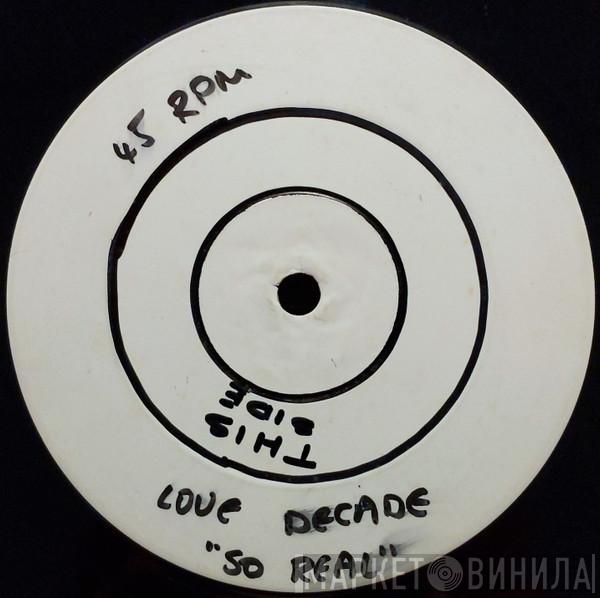 45 RPM
THIS
SIDE
LOVE DECADE
"SO REAL"
МАРКЕТ ВИНИЛА